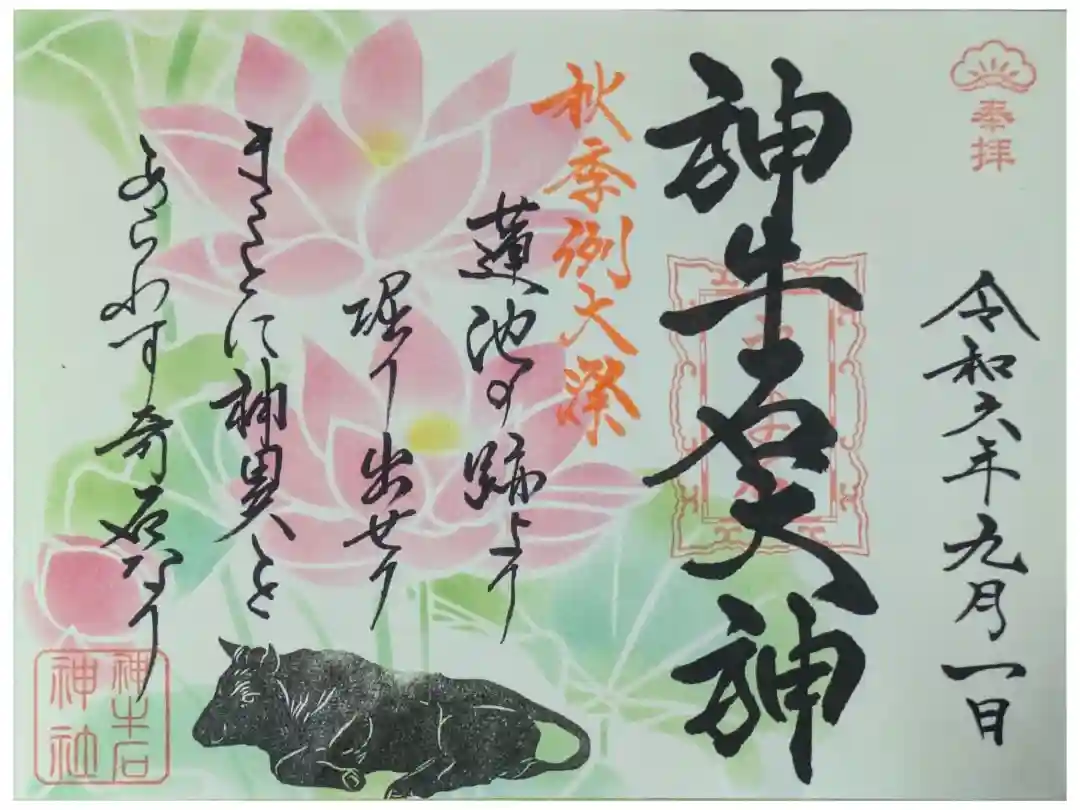 奉拝
令和六年九月一日
神牛石天神
秋季例大祭
蓮池の跡より
堀り出せり
まことに神異を
あらわす奇石なり
神牛石
神社